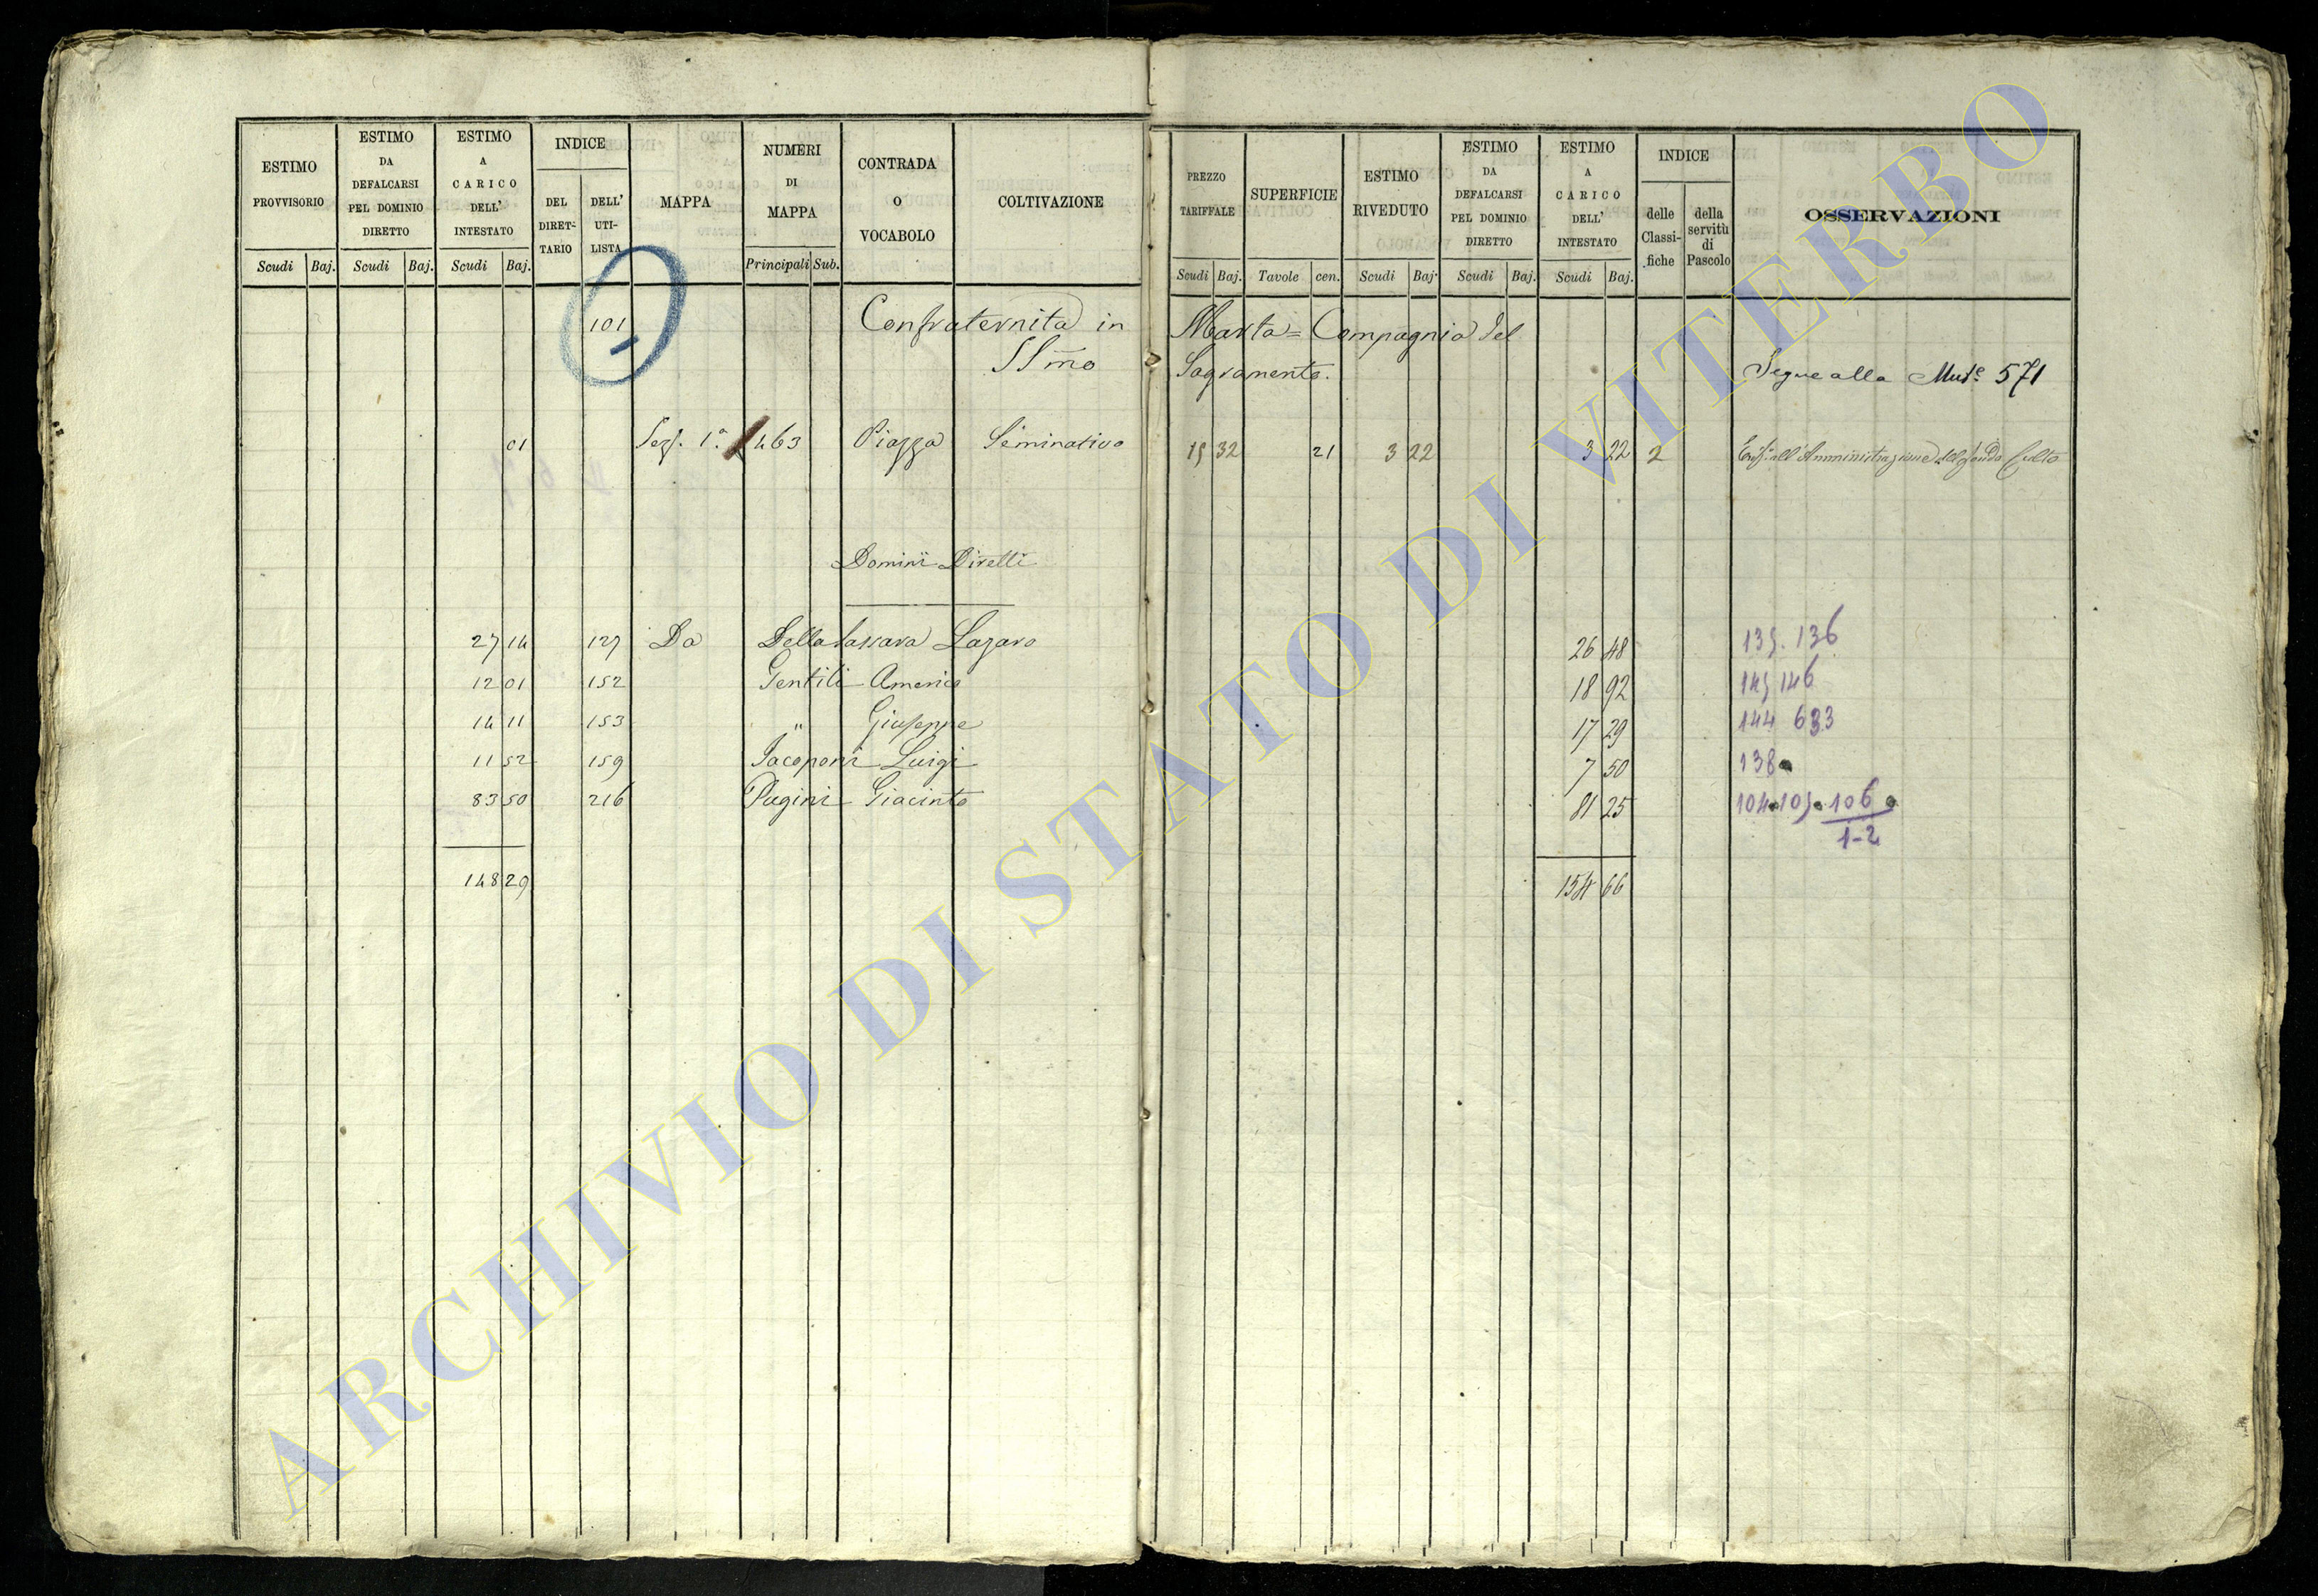 ESTIMO PROVVISORIO
Scudi Baj.
ESTIMO DA DEFALCARSI PEL DOMINIO DIRETTO
Scudi Baj.
ESTIMO A CARICO DELL' INTESTATO
Scudi Baj.
INDICE
DEL DIRET- TARIO
DELL' UTI- LISTA
MAPPA
NUMERI DI MAPPA
Principali Sub.
CONTRADA O VOCABOLO
COLTIVAZIONE
PREZZO TARIFFALE
Scudi Baj.
SUPERFICIE
Tavole cen.
ESTIMO RIVEDUTO
Scudi Baj.
ESTIMO DA DEFALCARSI PEL DOMINIO DIRETTO
Scudi Baj.
ESTIMO A CARICO DELL' INTESTATO
Scudi Baj.
INDICE
delle Classi- fiche
della servitù di Pascolo
OSSERVAZIONI
101 Confraternita in Marta = Compagnia del
SSmo Sagramento. Segue alla 571
01 Sez. 1ª 463 Piazza Seminativo 15 32 21 3 22 3 22 2 all'Amministrazione del fondo Culto
Dominii Diretti
27 14 127 Da Lazaro 26 48 135. 136
12 01 152 Gentili Americo 18 92 145 146
14 11 153 " Giuseppe 17 29 144 633
11 52 159 Jacoponi Luigi 7 50 138
83 50 216 Pugini Giacinto 81 25 104 105 106
1-2
148 29 154 66
ARCHIVIO DI STATO DI VITERBO